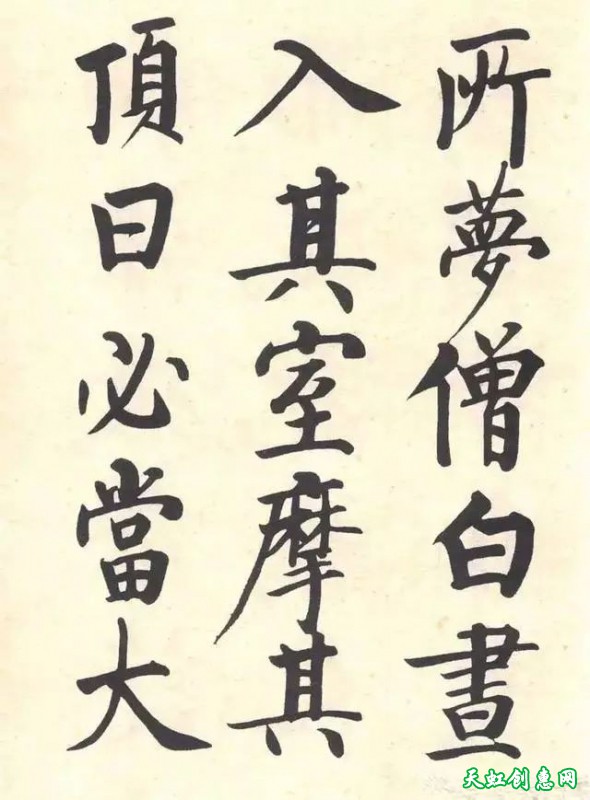 所夢僧白晝
入其室摩其
頂曰必當大
天虹创惠网